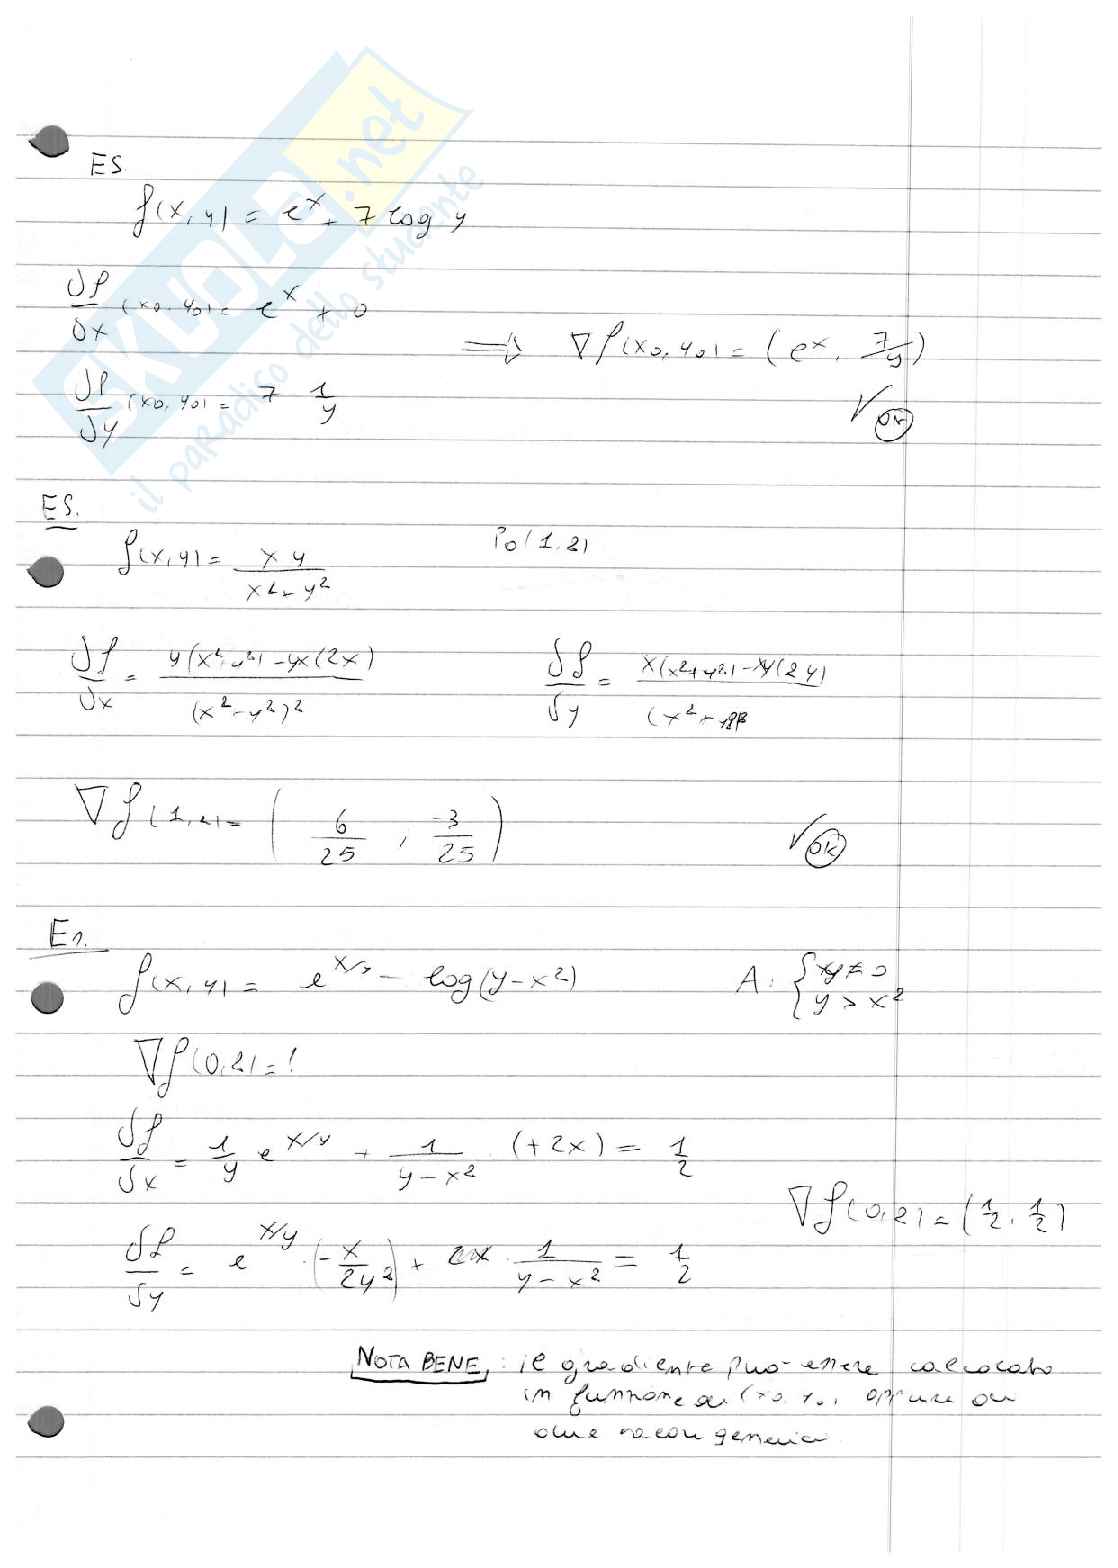 SKUOLA.net
il paradiso dello studente
ES
f(x,y) = e^x + 7 log y
∂f/∂x (x0,y0) = e^x + 0
=> ∇f(x0,y0) = (e^x, 7/y)
∂f/∂y (x0,y0) = 7 1/y
✓ OK
ES.
f(x,y) = xy/(x²+y²) P0(1,2)
∂f/∂x = (y(x²+y²)-yx(2x))/(x²+y²)² ∂f/∂y = (x(x²+y²)-xy(2y))/(x²+y²)²
∇f(1,2) = (6/25, -3/25)
✓ OK
Es.
f(x,y) = e^(x/y) - log(y-x²) A: {xy≠0
y>x²
∇f(0,2) = !
∂f/∂x = 1/y e^(x/y) + 1/(y-x²) · (+2x) = 1/2
∇f(0,2) = (1/2, 1/2)
∂f/∂y = e^(x/y) · (-x/2y²) + 1/(y-x²) = 1/2
NOTA BENE: il gradiente può essere calcolato
in funzione di (x0,y0) oppure
due generici